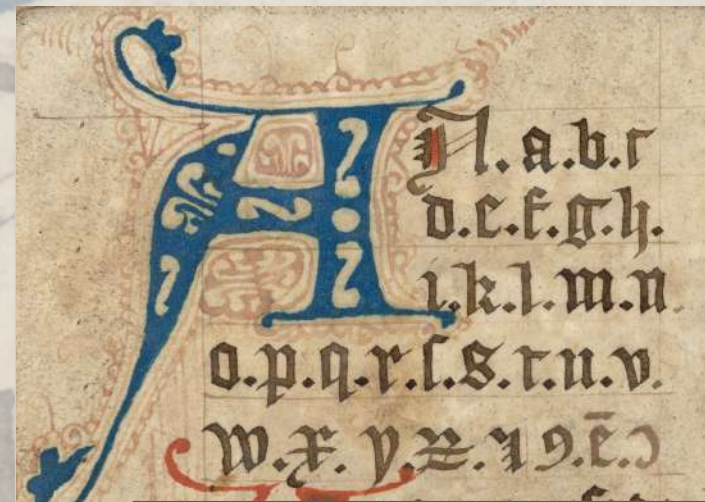 A A.a.b.c
d.e.f.g.h.
i.k.l.m.n
o.p.q.r.ſ.s.t.u.v.
w.x.y.z.⁊ꝯ.ē.ↄ